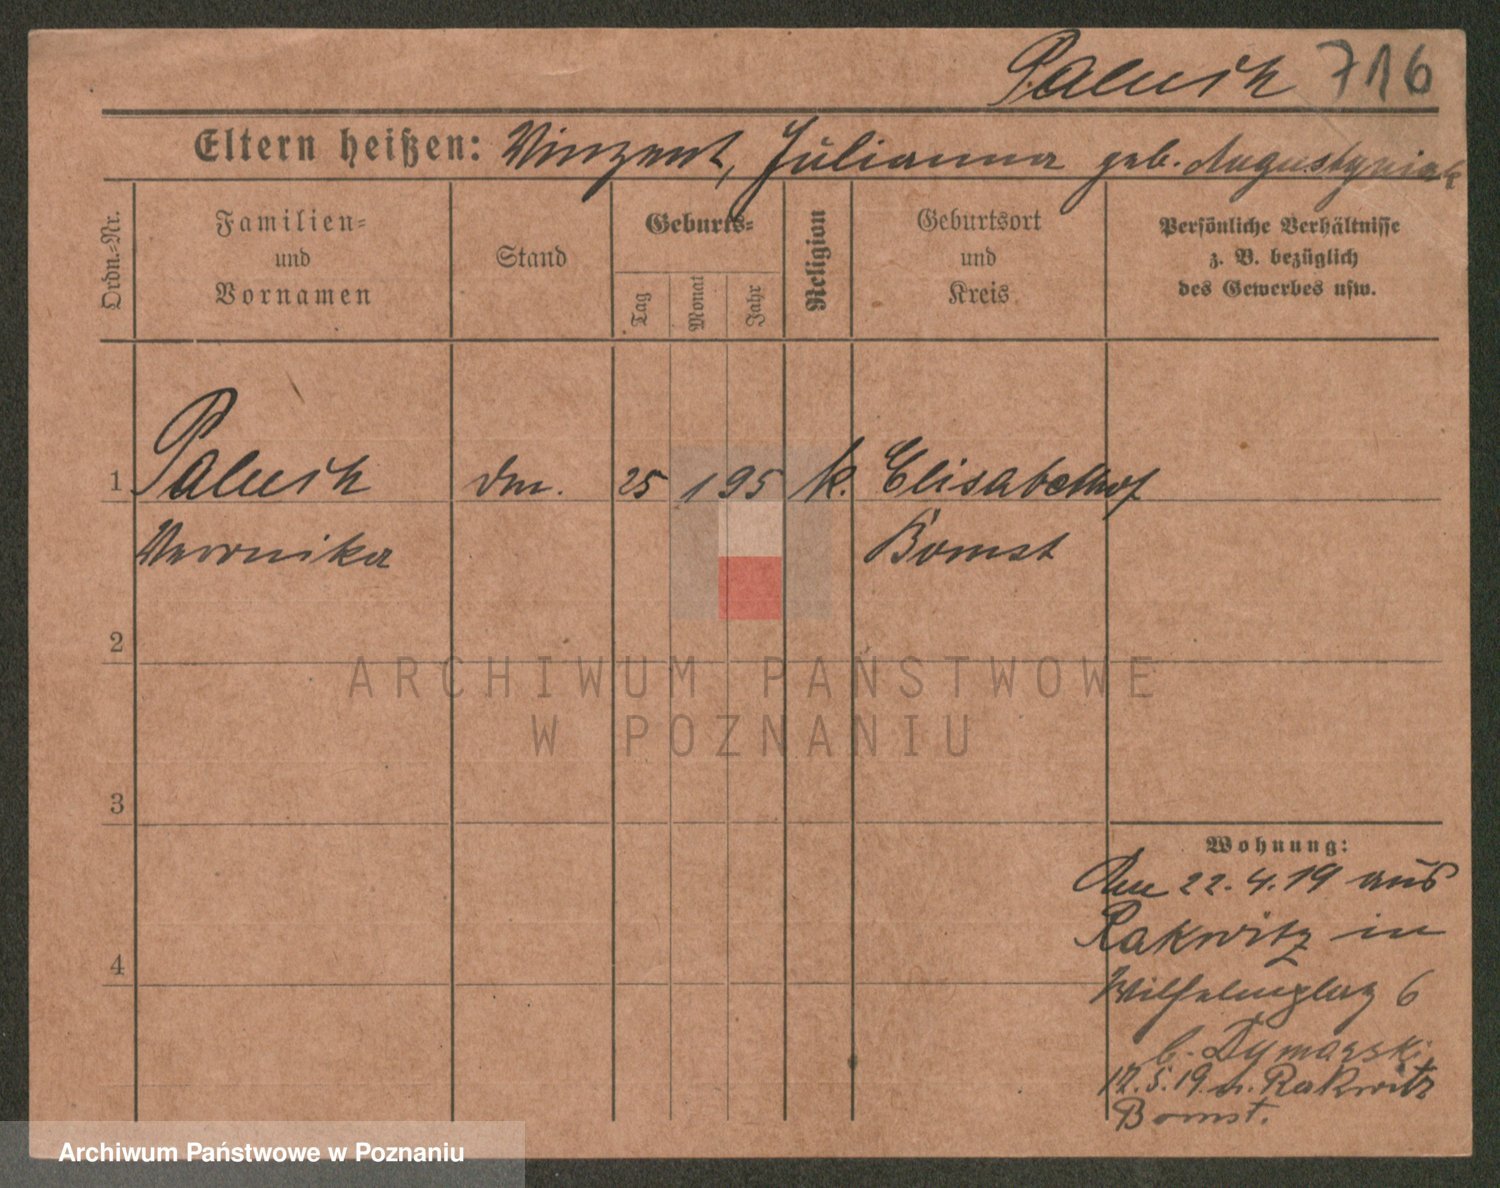 Palusik 716
Eltern heißen: Vinzent, Julianna geb. Augustyniak
Ordn.-Nr.
Familien-
und
Vornamen
Stand
Geburts-
Tag
Monat
Jahr
Religion
Geburtsort
und
Kreis
Persönliche Verhältnisse
z. B. bezüglich
des Gewerbes usw.
1 Palusik 25 1 95 k. Elisabethhof
Veronika Bomst
2
3
4
Wohnung:
Den 22.4.19 aus
Rakwitz in
Wilhelmplatz 6
b. Dymarski
12.5.19. n. Rakwitz
Bomst.
ARCHIWUM PAŃSTWOWE
W POZNANIU
Archiwum Państwowe w Poznaniu